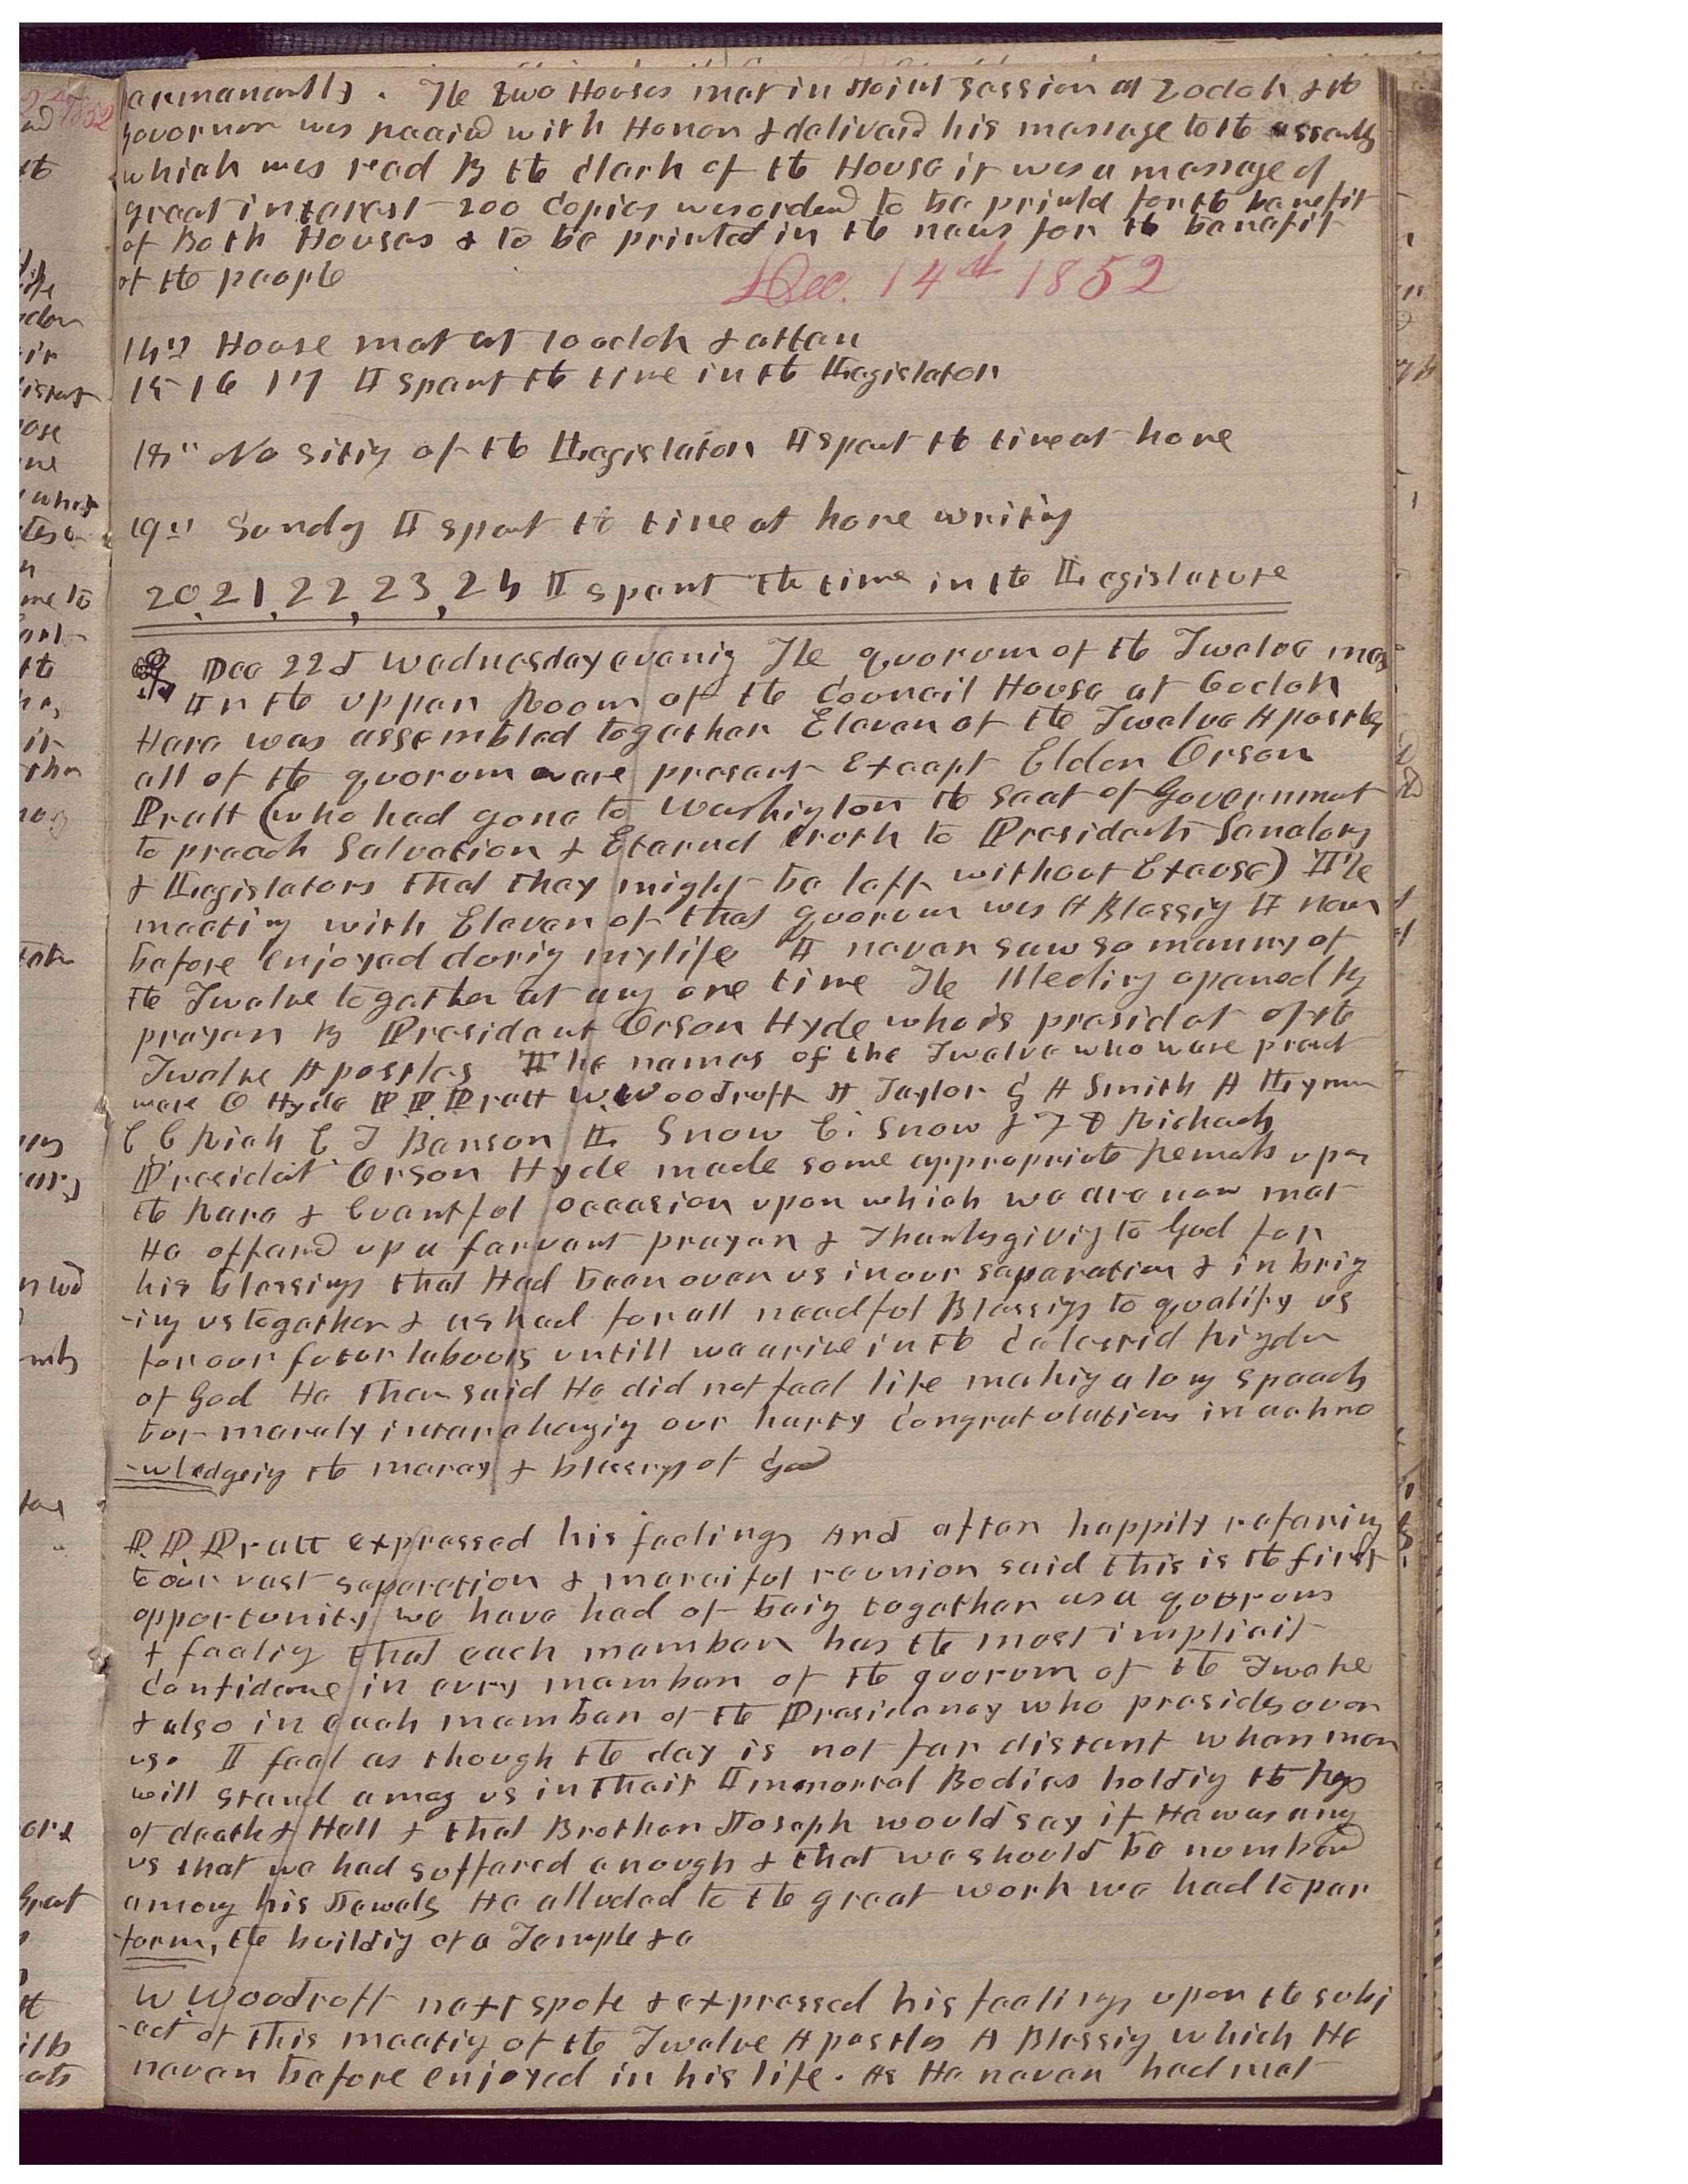 permanantly. The two Houses met in Joint Session at 2 oclok & the
Govornor was receivd with Honor & deliverd his message to the assembly
which was read By the Clerk of the House it was a message of
great interest 200 Copies was orderd to be printed for the benefit
of Both Houses & to be printed in the news for the benefit
of the people
Dec. 14th 1852
14th House met at 10 oclok & often
15 16 17 I spent the time in the Legislator
18th No sitig of the Legislator I spent the time at home
19th Sundy I spent the time at home writing
20, 21, 22, 23, 24 I spent the time in the Legislature
Dec 22d Wednesday evenig The quorum of the Twelve met
In the upper Room of the Council House at 6 oclok
Here was assembled together Eleven of the Twelve Apostles
all of the quorum ware present Except Elder Orson
Pratt (who had gone to Washigton the Seat of Government
to preach Salvation & Eternal truth to Presidents Senators
& Legislators that they might be left without Excuse) The
meeting with Eleven of that quorum was A Blessig I never
before enjoyed durig my life I never saw so manny of
the Twelve together at any one time The Meeting opened by
prayer By President Orson Hyde who is presidet of the
Twelve Apostles The names of the Twelve who ware present
ware O Hyde P. P. Pratt W. Woodruff J Taylor G A Smith A Lyman
C C Rich E T Benson L Snow E. Snow & F D Richards
Presidet Orson Hyde made some appropriate Remarks upon
the Rare & Eventful occasion upon which we are now met
He offerd up a fervant prayer & Thanksgiving to God for
his blessings that Had been over us in our separation & in brig
-ing us together & asked for all needful Blessigs to qualify us
for our futur labours untill we arive in the Celestial kigdom
of God He then said He did not feel like makig a long speech
but meraly interchangig our harty Congratulations in ackno
-wledgeig the mercy & blessings of God
P. P. Pratt expressed his feelings And after happily refering
to our vast seperation & merciful reunion said this is the first
opportunity we have had of beig together as a quorum
& feelig that each member has the most implicit
Confidence in evry member of the quorum of the Twelve
& also in each member of the Presidency who presides over
us. I feel as though the day is not far distant when men
will stand among us in their Immortal Bodies holdig the keys
of death & Hell & that Brother Joseph would say if He was among
us that we had suffered enough & that we should be numbered
among his Jewels He alluded to the great work we had to per
-form, the buildig of a Temple &c
W. Woodruff next spoke & expressed his feelings upon the subj
-ect of this meetig of the Twelve Apostles A Blessig which He
never before enjoyed in his life. As He never had met